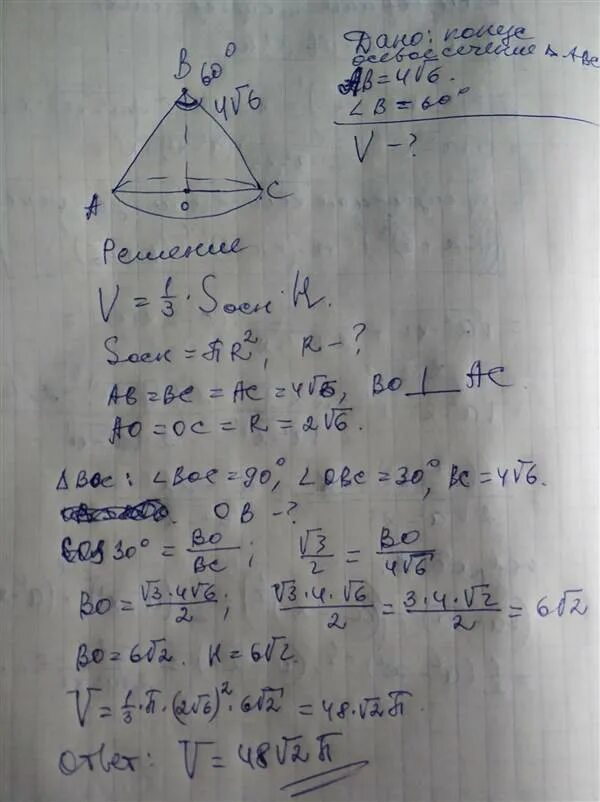 Дано: конус
осевое сечение △ ABC
AB = 4√6.
∠B = 60°
V - ?
B 60°
4√6
A
O
C
Решение
V = 1/3 · Sосн · H.
Sосн = πR², R - ?
AB = BC = AC = 4√6, BO ⊥ AC
AO = OC = R = 2√6.
△BOC: ∠BOC = 90°, ∠OBC = 30°, BC = 4√6.
OB - ?
cos 30° = BO/BC; √3/2 = BO/4√6
BO = √3·4√6/2; √3·4·√6/2 = 3·4·√2/2 = 6√2
BO = 6√2. H = 6√2.
V = 1/3 · π · (2√6)² · 6√2 = 48·√2 π.
Ответ: V = 48√2 π